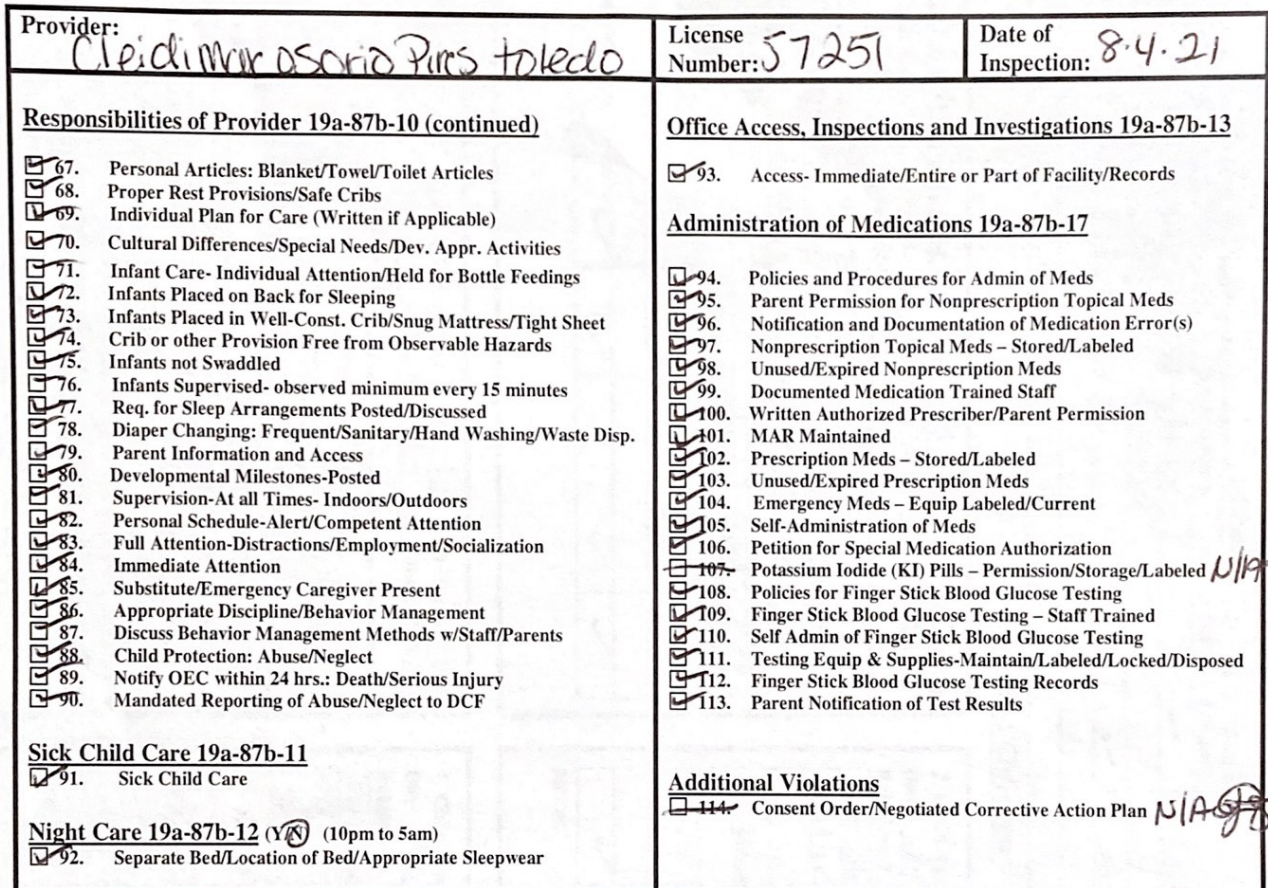 Provider: Cleidimar osorio Pires toledo
License Number: 57251
Date of Inspection: 8.4.21
Responsibilities of Provider 19a-87b-10 (continued)
67. Personal Articles: Blanket/Towel/Toilet Articles
68. Proper Rest Provisions/Safe Cribs
69. Individual Plan for Care (Written if Applicable)
70. Cultural Differences/Special Needs/Dev. Appr. Activities
71. Infant Care- Individual Attention/Held for Bottle Feedings
72. Infants Placed on Back for Sleeping
73. Infants Placed in Well-Const. Crib/Snug Mattress/Tight Sheet
74. Crib or other Provision Free from Observable Hazards
75. Infants not Swaddled
76. Infants Supervised- observed minimum every 15 minutes
77. Req. for Sleep Arrangements Posted/Discussed
78. Diaper Changing: Frequent/Sanitary/Hand Washing/Waste Disp.
79. Parent Information and Access
80. Developmental Milestones-Posted
81. Supervision-At all Times- Indoors/Outdoors
82. Personal Schedule-Alert/Competent Attention
83. Full Attention-Distractions/Employment/Socialization
84. Immediate Attention
85. Substitute/Emergency Caregiver Present
86. Appropriate Discipline/Behavior Management
87. Discuss Behavior Management Methods w/Staff/Parents
88. Child Protection: Abuse/Neglect
89. Notify OEC within 24 hrs.: Death/Serious Injury
90. Mandated Reporting of Abuse/Neglect to DCF
Sick Child Care 19a-87b-11
91. Sick Child Care
Night Care 19a-87b-12 (Y/N) (10pm to 5am)
92. Separate Bed/Location of Bed/Appropriate Sleepwear
Office Access, Inspections and Investigations 19a-87b-13
93. Access- Immediate/Entire or Part of Facility/Records
Administration of Medications 19a-87b-17
94. Policies and Procedures for Admin of Meds
95. Parent Permission for Nonprescription Topical Meds
96. Notification and Documentation of Medication Error(s)
97. Nonprescription Topical Meds – Stored/Labeled
98. Unused/Expired Nonprescription Meds
99. Documented Medication Trained Staff
100. Written Authorized Prescriber/Parent Permission
101. MAR Maintained
102. Prescription Meds – Stored/Labeled
103. Unused/Expired Prescription Meds
104. Emergency Meds – Equip Labeled/Current
105. Self-Administration of Meds
106. Petition for Special Medication Authorization
107. Potassium Iodide (KI) Pills – Permission/Storage/Labeled N/A
108. Policies for Finger Stick Blood Glucose Testing
109. Finger Stick Blood Glucose Testing – Staff Trained
110. Self Admin of Finger Stick Blood Glucose Testing
111. Testing Equip & Supplies-Maintain/Labeled/Locked/Disposed
112. Finger Stick Blood Glucose Testing Records
113. Parent Notification of Test Results
Additional Violations
114. Consent Order/Negotiated Corrective Action Plan N/A